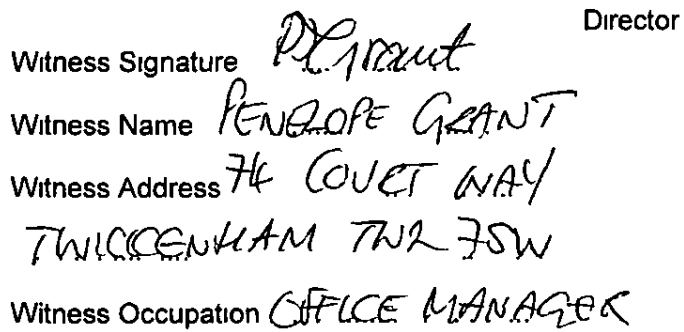 Director
Witness Signature PLGrant
Witness Name PENELOPE GRANT
Witness Address 74 COURT WAY
TWICKENHAM TW2 7SW
Witness Occupation OFFICE MANAGER